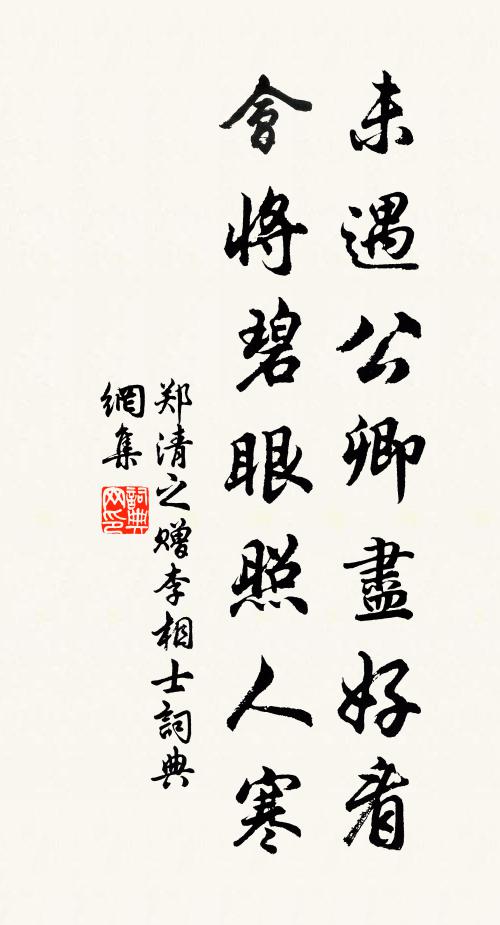 未遇公卿盡好看
會將碧眼照人寒
郑清之赠李相士詞典
網集
詞典
网印